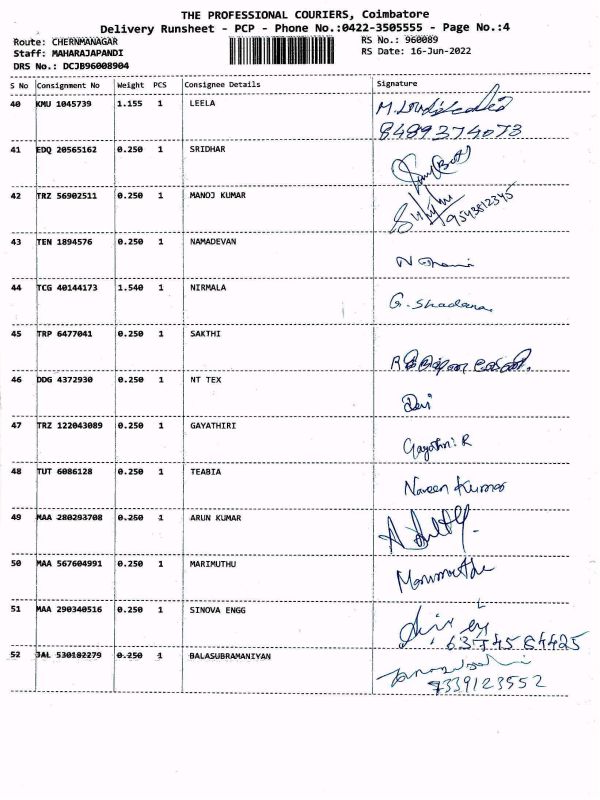 THE PROFESSIONAL COURIERS, Coimbatore
Delivery Runsheet - PCP - Phone No.:0422-3505555 - Page No.:4
Route: CHERNMANAGAR RS No.: 960089
Staff: MAHARAJAPANDI RS Date: 16-Jun-2022
DRS No.: DCJB96008904
S No Consignment No Weight PCS Consignee Details Signature
40 KMU 1045739 1.155 1 LEELA
8489374073
41 EDQ 20565162 0.250 1 SRIDHAR
42 TRZ 56902511 0.250 1 MANOJ KUMAR
9543812345
43 TEN 1894576 0.250 1 NAMADEVAN
44 TCG 40144173 1.540 1 NIRMALA
G. Shadana
45 TRP 6477041 0.250 1 SAKTHI
46 DDG 4372930 0.250 1 NT TEX
Devi
47 TRZ 122043089 0.250 1 GAYATHIRI
Gayathri R
48 TUT 6086128 0.250 1 TEABIA
Naveen Kumar
49 MAA 280293708 0.250 1 ARUN KUMAR
50 MAA 567604991 0.250 1 MARIMUTHU
Marimuthu
51 MAA 290340516 0.250 1 SINOVA ENGG
6374564425
52 JAL 530182279 0.250 1 BALASUBRAMANIYAN
7339123552